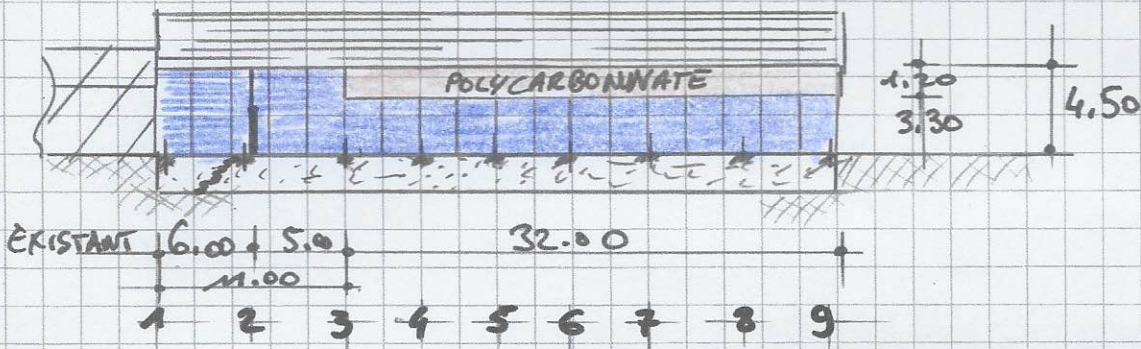 POLYCARBONNATE
1.20
3.30
4.50
EXISTANT 6.00 5.00 32.00
11.00
1 2 3 4 5 6 7 8 9